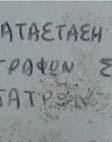 ΑΤΑΣΤΑΣΗ
ΓΡΑΦΩΝ Σ
ΓΑΤΡΩΝ